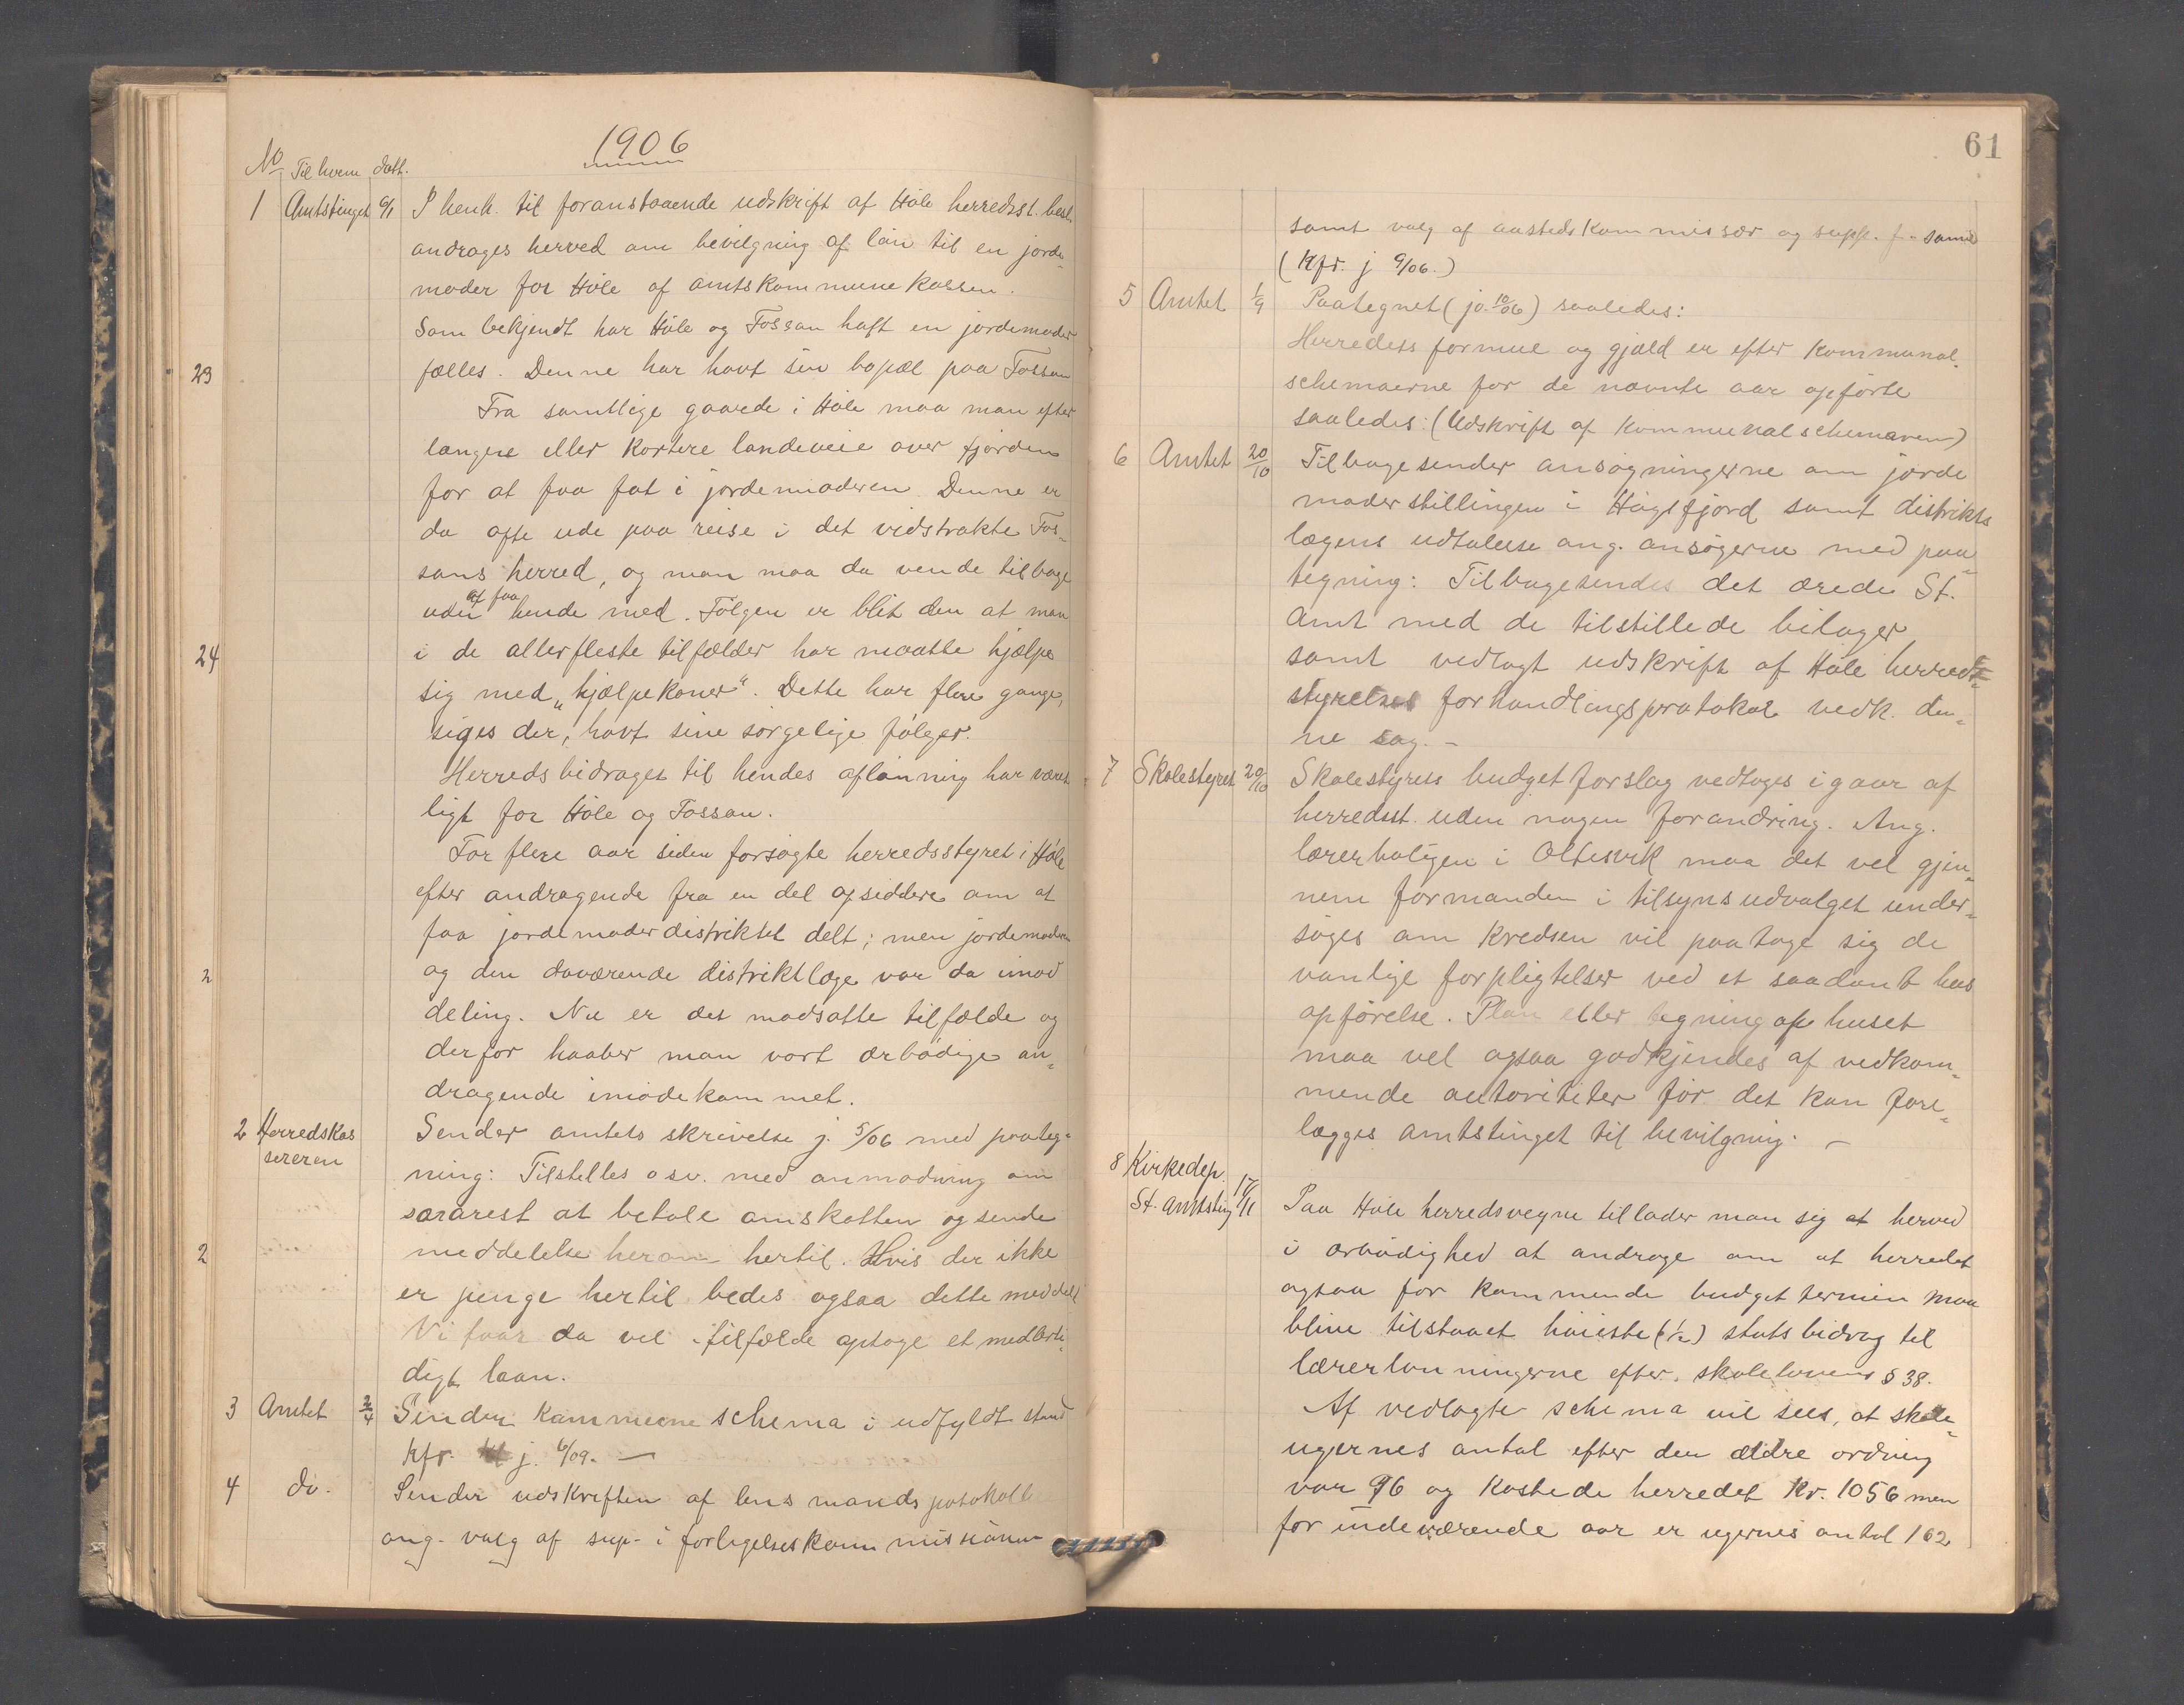 1906
No Til hvem dato.
1 Amtstinget 6/1 I henh. til foranstaaende udskrift af Höle herredsst. besl.
andrages herved om bevilgning af lön til en jorde-
moder for Höle af amtskommunekassen.
Som bekjendt har Höle og Fossan haft en jordemoder
fælles. Denne har havt sin bopæl paa Fossan
Fra samtlige gaarde i Höle maa man efter
længere eller kortere landeveie over fjorden
for at faa fat i jordemoderen. Denne er
da ofte ude paa reise i det vidstrakte Fos-
sans herred, og man maa da vende tilbage
uden at faa hende med. Fölgen er blit den at man
i de allerfleste tilfælder har maatte hjælpe
sig med „hjælpekoner“. Dette har flere gange,
siges der, havt sine sörgelige fölger.
Herredsbidraget til hendes aflönning har været
ligt for Höle og Fossan.
For flere aar siden forsögte herredsstyret i Höle
efter andragende fra en del opsiddere om at
faa jordemoderdistriktet delt; men jordemoderen
og den daværende distriktlæge var da imod
deling. Nu er det modsatte tilfælde og
derfor haaber man vort ærbödige an-
dragende imödekommet.
2 Herredskas
sereren
Sender amtets skrivelse j. 5/06 med paateg-
ning: Tilstilles osv. med anmodning om
snarest at betale amskatten og sende
meddelelse herom hertil. Hvis der ikke
er penge hertil bedes ogsaa dette meddelt
Vi faar da vel i tilfælde optage et midlerti-
digt laan.
3 Amtet 2/4 Sender kommuneschema i udfyldt stand
Kfr. j. 6/09. —
4 do. Sender udskriften af lensmandsprotokoll
ang. valg af sup. i forligelseskommissionen
23
24
2
2
61
samt valg af aastedskommissær og supp. f. samme
(Kfr. j 9/06.)
5 Amtet 1/9 Paategnet (jo. 10/06) saaledes:
Herredets formue og gjæld er efter kommunal-
schemaerne for de nævnte aar opförte
saaledes: (Udskrift af kommunalschemaerne)
6 Amtet 20/10 Tilbagesender ansögningerne om jorde
moderstillingen i Högsfjord samt distrikts
lægens udtalelse ang. ansögerne med paa
tegning: Tilbagesendes det ærede St.
Amt med de tilstillede bilager
samt vedlagt udskrift af Höle herreds-
styrelses forhandlingsprotokol vedk. den-
ne sag. —
7 Skolestyret 20/10 Skolestyrets budgetforslag vedtoges igaar af
herredsst. uden nogen forandring. Ang.
lærerboligen i Oltesvik maa det vel gjen-
nem formanden i tilsynsudvalget under-
söges om kredsen vil paatage sig de
vanlige forpligtelser ved et saadant hus
opförelse. Plan eller tegning af huset
maa vel ogsaa godkjendes af vedkom-
mende autoriteter för det kan fore-
lægges amtstinget til bevilgning. —
8 Kirkedep.
St. amtsting 17/11 Paa Höle herredsvegne tillader man sig at herved
i ærbödighed at andrage om at herredet
ogsaa for kommende budgettermin maa
blive tilstaaet höieste (1/2) statsbidrag til
lærerlönningerne efter skolelovens § 38.
Af vedlagte schema vil sees, at skole-
ugernes antal efter den ældre ordning
var 96 og kostede herredet Kr. 1056 men
for indeværende aar er ugernes antal 162